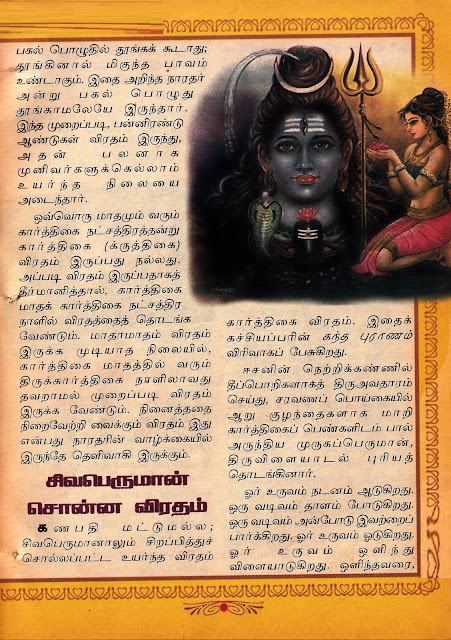 பகல் பொழுதில் தூங்கக் கூடாது;
தூங்கினால் மிகுந்த பாவம்
உண்டாகும். இதை அறிந்த நாரதர்
அன்று பகல் பொழுது
தூங்காமலேயே இருந்தார்.
இந்த முறைப்படி, பன்னிரண்டு
ஆண்டுகள் விரதம் இருந்து,
அதன் பலனாக
முனிவர்களுக்கெல்லாம்
உயர்ந்த நிலையை
அடைந்தார்.
ஒவ்வொரு மாதமும் வரும்
கார்த்திகை நட்சத்திரத்தன்று
கார்த்திகை (க்ருத்திகை)
விரதம் இருப்பது நல்லது.
அப்படி விரதம் இருப்பதாகத்
தீர்மானித்தால், கார்த்திகை
மாதக் கார்த்திகை நட்சத்திர
நாளில் விரதத்தைத் தொடங்க
வேண்டும். மாதாமாதம் விரதம்
இருக்க முடியாத நிலையில்,
கார்த்திகை மாதத்தில் வரும்
திருக்கார்த்திகை நாளிலாவது
தவறாமல் முறைப்படி விரதம்
இருக்க வேண்டும். நினைத்ததை
நிறைவேற்றி வைக்கும் விரதம் இது
என்பது நாரதரின் வாழ்க்கையில்
இருந்தே தெளிவாகி இருக்கும்.
சிவபெருமான்
சொன்ன விரதம்
கணபதி மட்டுமல்ல;
சிவபெருமானாலும் சிறப்பித்துச்
சொல்லப்பட்ட உயர்ந்த விரதம்
கார்த்திகை விரதம். இதைக்
கச்சியப்பரின் கந்த புராணம்
விரிவாகப் பேசுகிறது.
ஈசனின் நெற்றிக்கண்ணில்
தீப்பொறிகளாகத் திருஅவதாரம்
செய்து, சரவணப் பொய்கையில்
ஆறு குழந்தைகளாக மாறி
கார்த்திகைப் பெண்களிடம் பால்
அருந்திய முருகப்பெருமான்,
திருவிளையாடல் புரியத்
தொடங்கினார்.
ஓர் உருவம் நடனம் ஆடுகிறது.
ஒரு வடிவம் தாளம் போடுகிறது.
ஒரு வடிவம் அன்போடு இவற்றைப்
பார்க்கிறது. ஓர் உருவம் ஓடுகிறது.
ஓர் உருவம் ஒளிந்து
விளையாடுகிறது. ஒளிந்தவரை,